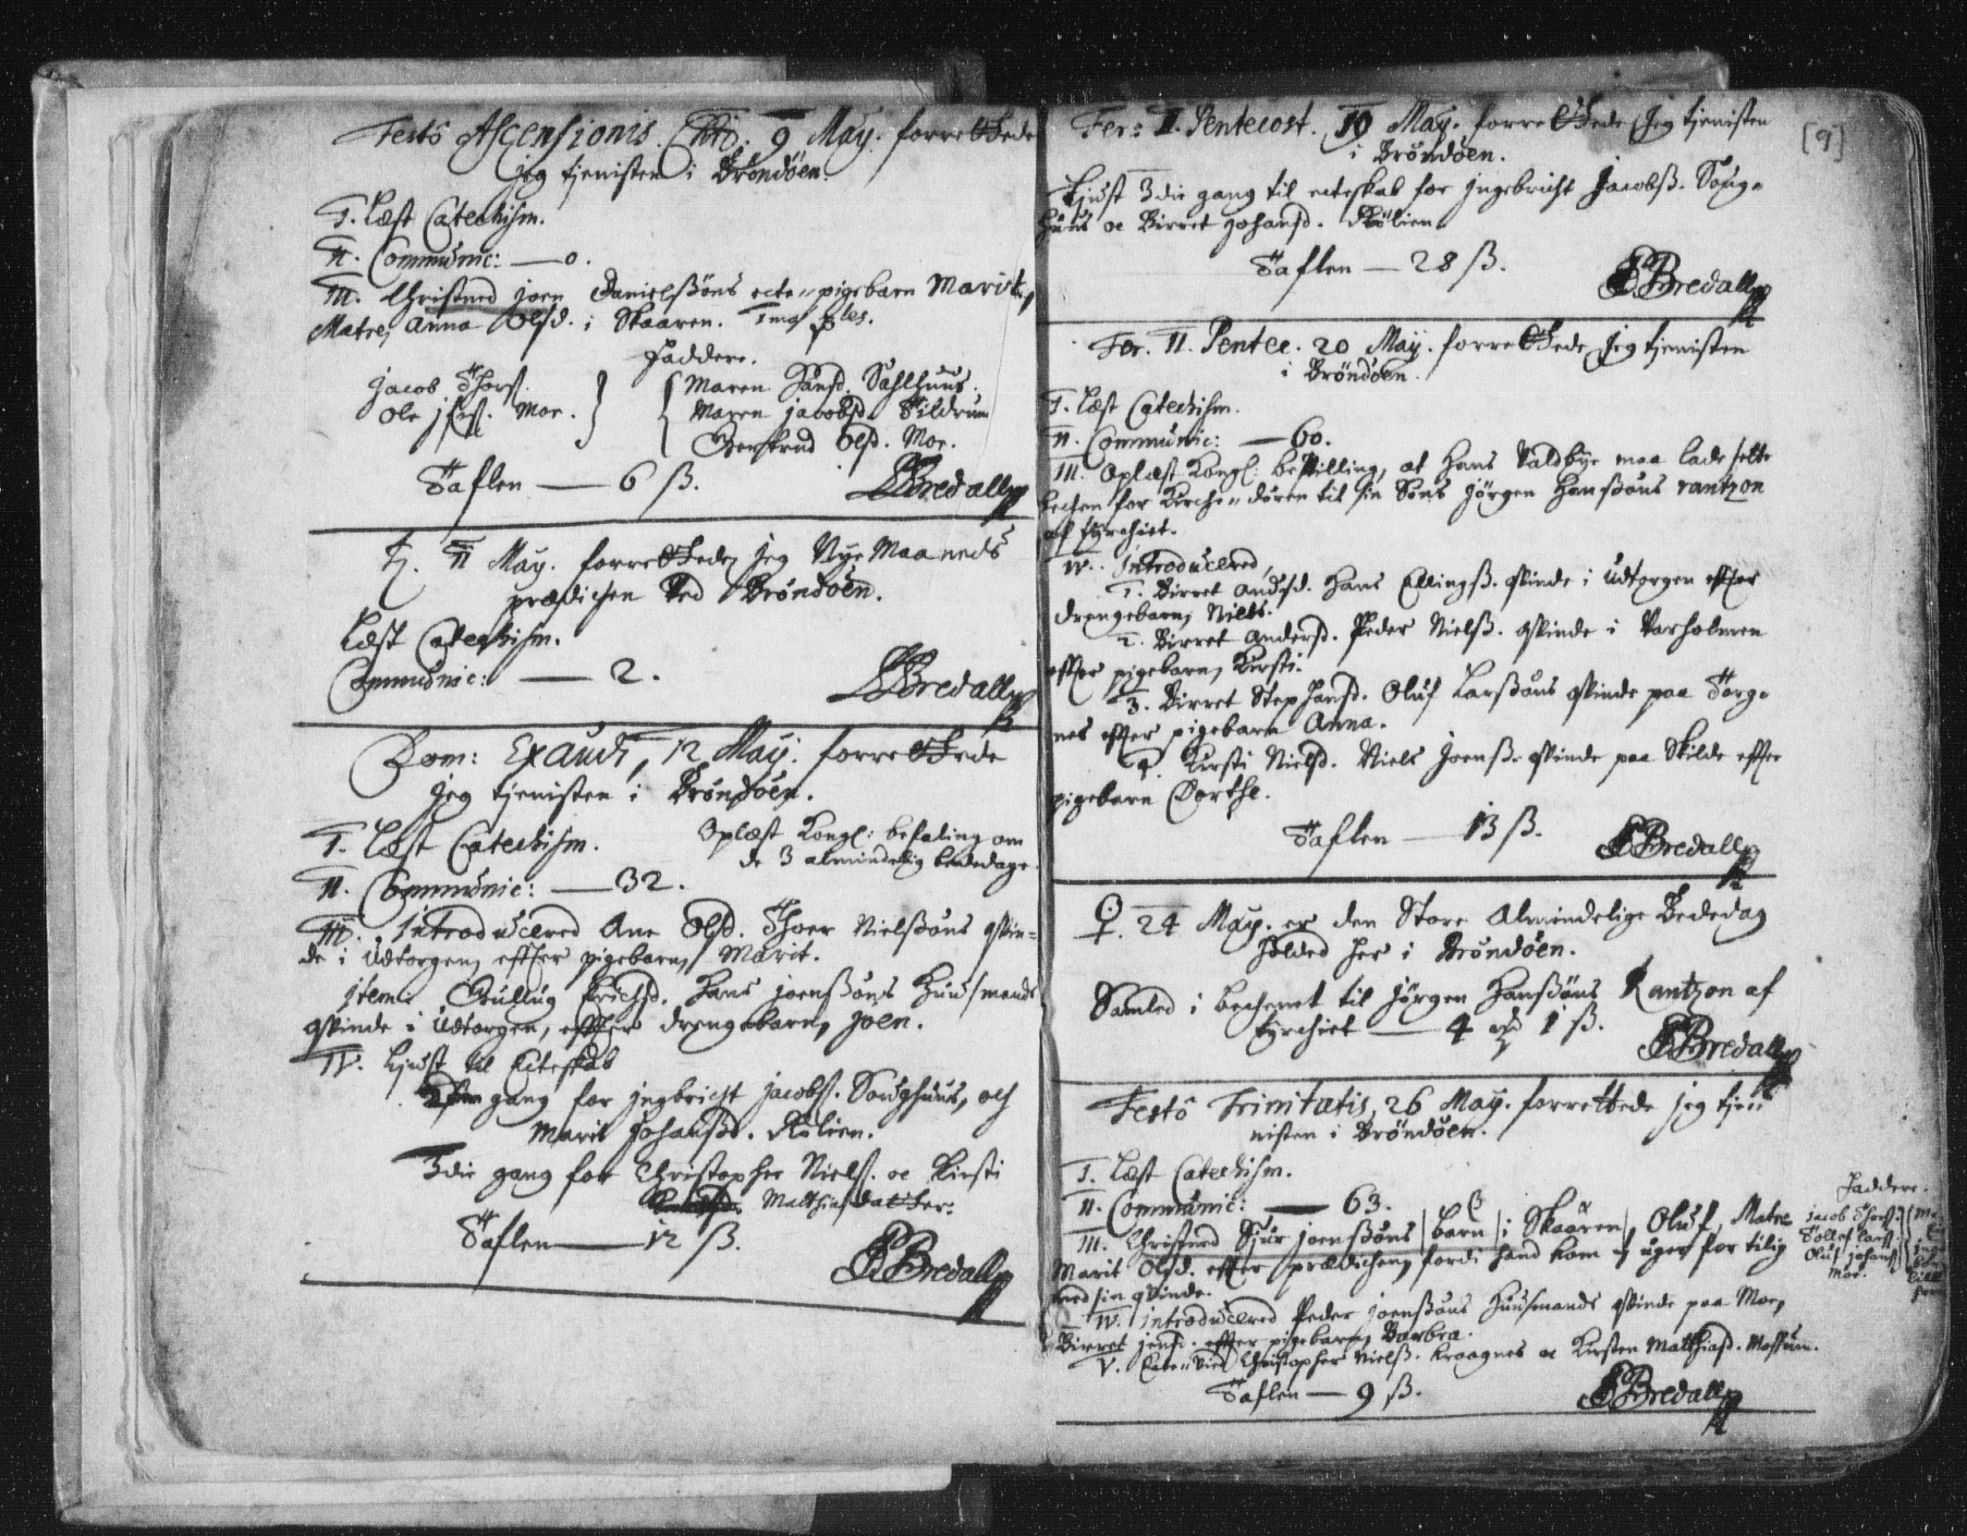 Festô Ascensionis Chri. 9 May. forrettede
jeg tjenisten i Brøndøen.
I. Læst Catechism.
II. Communic: — 0.
III. Christned Joen Danielssøns ecte-pigebarn Marit,
Matre, Anna Olsd. i Skaaren.
Faddere.
Jacob Thorss. Maren Hansd. Sahlhuus.
Ole Moe. Maren Jacobsd. Tildrum
Olsd. Moe.
Taflen — 6 ß. Bredall
♄. 11 May. forrettede jeg Nye Maaneds
prædichen Ved Brøndøen.
Læst Catechism.
Communic: — 2. Bredall
Dom: Exaudi, 12 May. forrettede
jeg tjenisten i Brøndøen.
I. Læst Catechism. Oplæst Kongl: befaling om
de 3 almindelig bededage.
II. Communic: — 32.
III. Introducered Ane Olsd. Thoer Nielssøns qvin-
de i Udtorgen, effter pigebarn, Marit.
item. Gullug Erichsd. Hans Joenssøns Huusmands
qvinde i Udtorgen, effter drengebarn, Joen.
IV. Liust til Ecteskab
gang for Jngbricht Jacobs. Soughuus, och
Marit Johansd. Rølien.
3die gang for Christopher Niels. oc Kirsti
Matthiasdatter.
Taflen — 12 ß.
Bredall
Fer: II. Pentecost. May. forrettede Jeg tjenisten [9]
i Brøndøen.
Liust 3die gang til ecteskab for Jngebricht Jacobsß. Soug-
huus oc Birret Johansd. Rølien
Taflen — 28 ß. Bredall
Fer. II. Pentec. 20 May. forrettede Jeg tjenisten
i Brøndøen.
I. Læst Catechism.
II. Communic: — 60.
III. Oplæst Kongl: bevilling, at Hans Valdbye maa lade sette
bechen for Kirche-døren til sin Søns Jørgen Hanssøns rantzon
af Tyrchiet.
IV. Introducered,
1. Birret Andsd. Hans Ellingß. qvinde i Udtorgen effter
drengebarn, Niels.
2. Birret Andersd. Peder Nielsß. qvinde i Varholmen
effter pigebarn, Kirsti.
3. Birret Stephansd. Oluf Larssøns qvinde paa Torg-
nes effter pigebarn Anna.
4. Kirsti Nielsd. Niels Joensß. qvinde paa Skilde effter
pigebarn Dorthe.
Taflen — 13 ß. Bredall
♀. 24 May. er den Store Almindelige Bededag
holded her i Brøndøen.
Samled i bechenet til Jørgen Hanssøns Rantzon af
Tyrchiet — 4 1 ß.
Bredall
Festô Trinitatis, 26 May. forrettede jeg tje-
nisten i Brøndøen.
I. Læst Catechism.
II. Communic: — 63. Faddere.
III. Christned Sjur Joenssøns barn i Skaaren, Oluf, Matre Jacob Thorss.
Marit Olsd. effter prædichen, fordi hand kom uger for tilig Tollef Larss.
med sin qvinde. Oluf Johanss
Moe.
IV. Introducered Peder Joenssøns Huusmands qvinde paa Moe,
Birret Jensd. effter pigebarn, Barbra.
V. Ecte-vied Christopher Nielsß. Kroagnes oc Kirsten Matthiasd. Mossum.
Taflen — 9 ß. Bredall